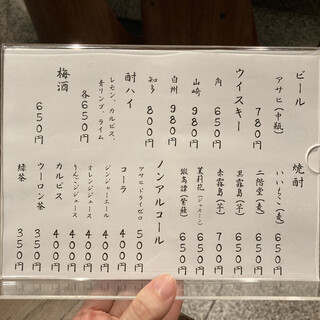 ビール
アサヒ(中瓶) 780円
ウイスキー
角 650円
山崎 980円
白州 980円
知多 800円
酎ハイ
レモン、カルピス、
青リンゴ、ライム
各650円
梅酒
650円
焼酎
いいちこ(麦) 650円
二階堂(麦) 650円
黒霧島(芋) 650円
赤霧島(芋) 700円
茉莉花(ジャスミン) 650円
鍛高譚(紫蘇) 650円
ノンアルコール
アサヒドライゼロ 500円
コーラ 400円
ジンジャーエール 400円
オレンジジュース 400円
りんごジュース 400円
カルピス 400円
ウーロン茶 350円
緑茶 350円